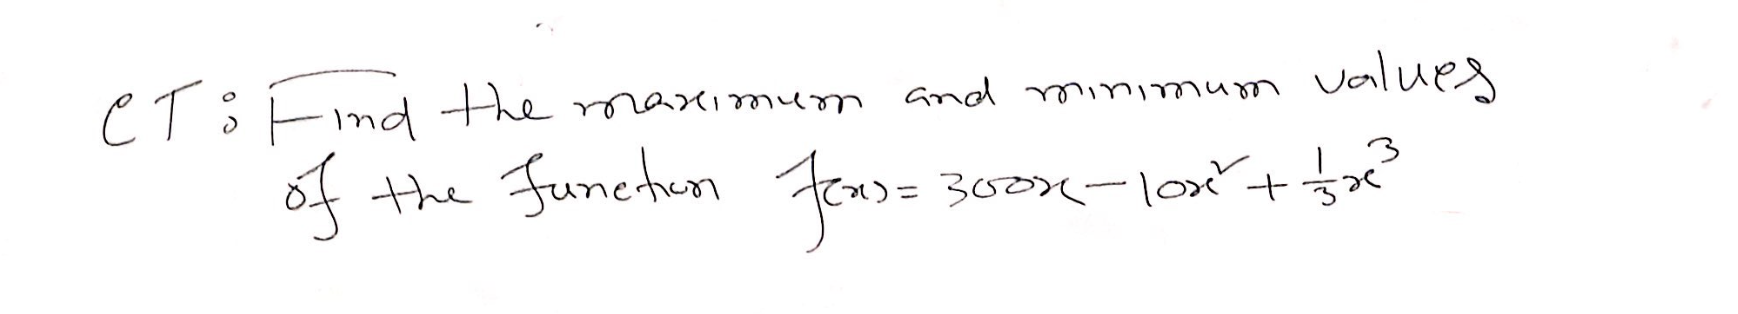 CT: Find the maximum and minimum values
of the function f(x) = 300x - 10x² + 1/3 x³